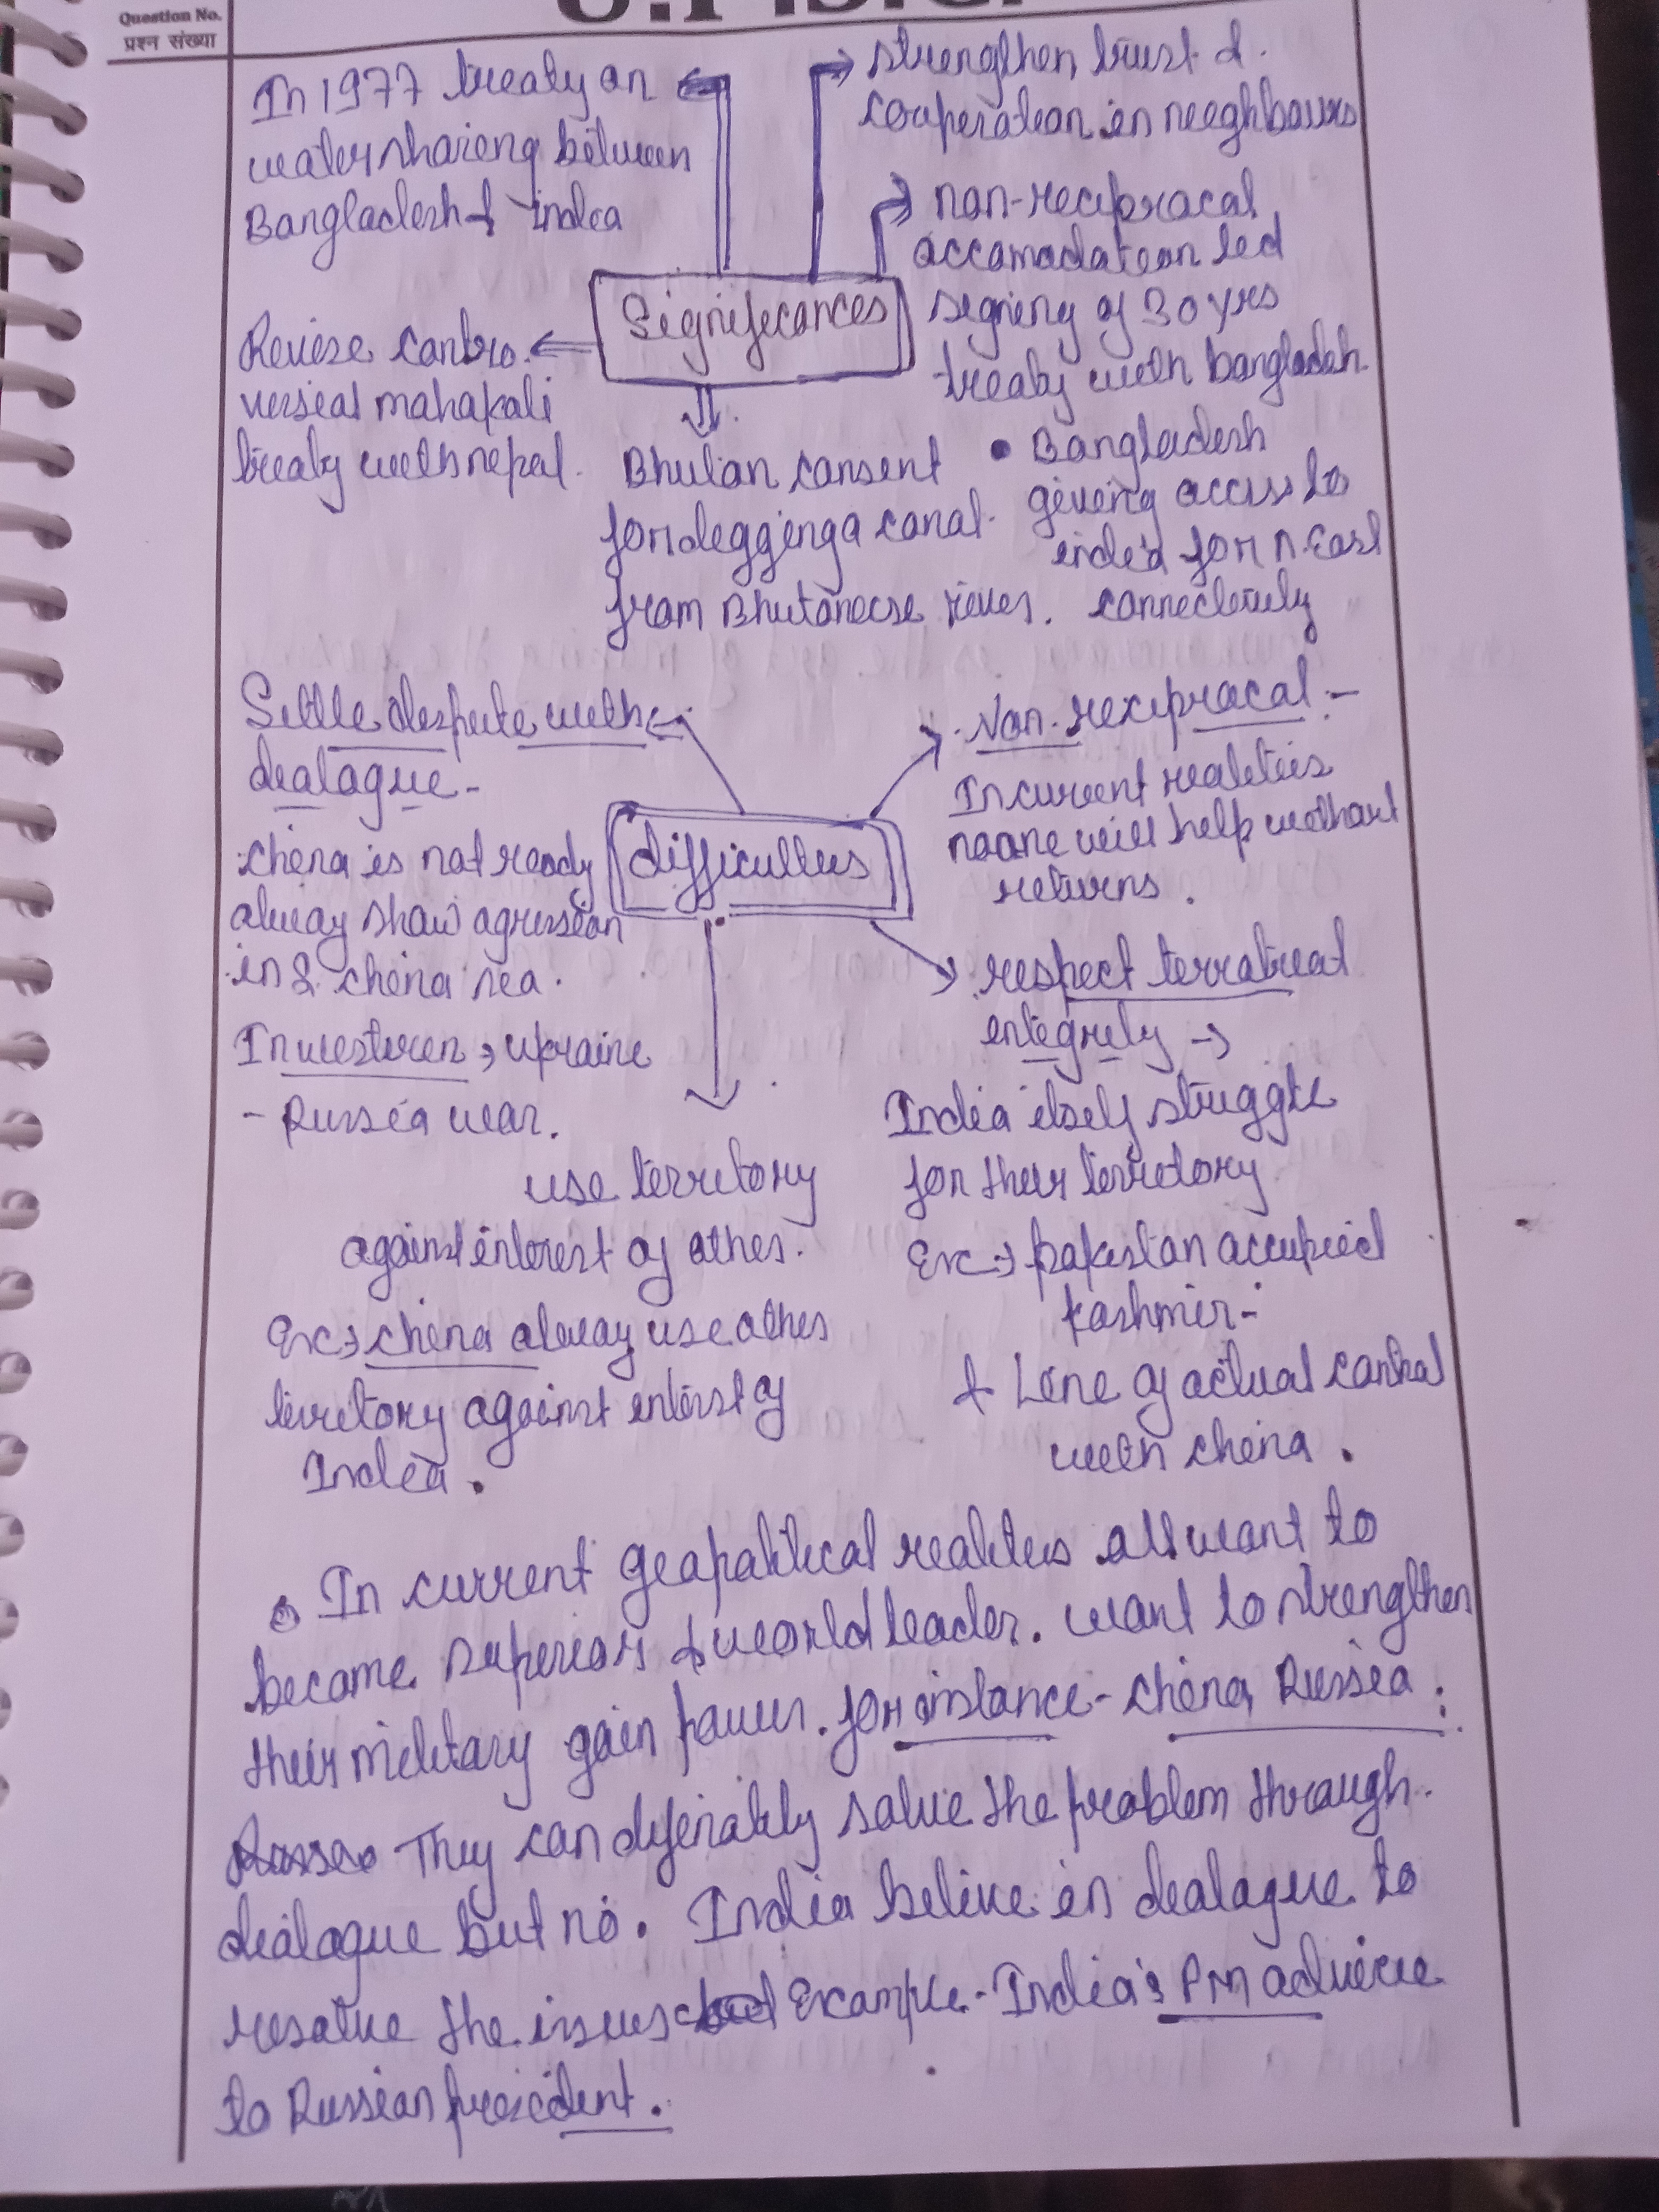 Question No.
प्रश्न संख्या
In 1977 treaty on
watersharing between
Bangladesh & india
strengthen trust &
cooperation in neeghbours
non-reciprocal
accomodation led
signing of 30 yrs
treaty with bangladesh.
• Bangladesh
giving access to
india for N.East
connectivity
Significances
Revise contro.
versial mahakali
treaty with nepal.
Bhutan consent
for digging a canal.
from Bhutanese river.
Settle dispute with
dialogue -
china is not ready
alway show agression
in S. china sea.
In western → ukraine
- Russia war.
difficulties
Non-reciprocal :-
In current realities
noone will help without
returns.
respect terratireal
integrity →
India itself struggle
for their territory
Ex:→ pakistan occupied
kashmir -
& Line of actual control
with china.
use territory
against interest of othes.
Ex → china alway use othes
territory against interst of
India.
In current geopolitical realities all want to
become superior & world leader. want to strengthen
their military gain power. for instance - china, Russia.
They can definately solve the problem through
dialogue but no. India belive in dialogue to
resolve the issues Example - India's PM advice
to Russian president.